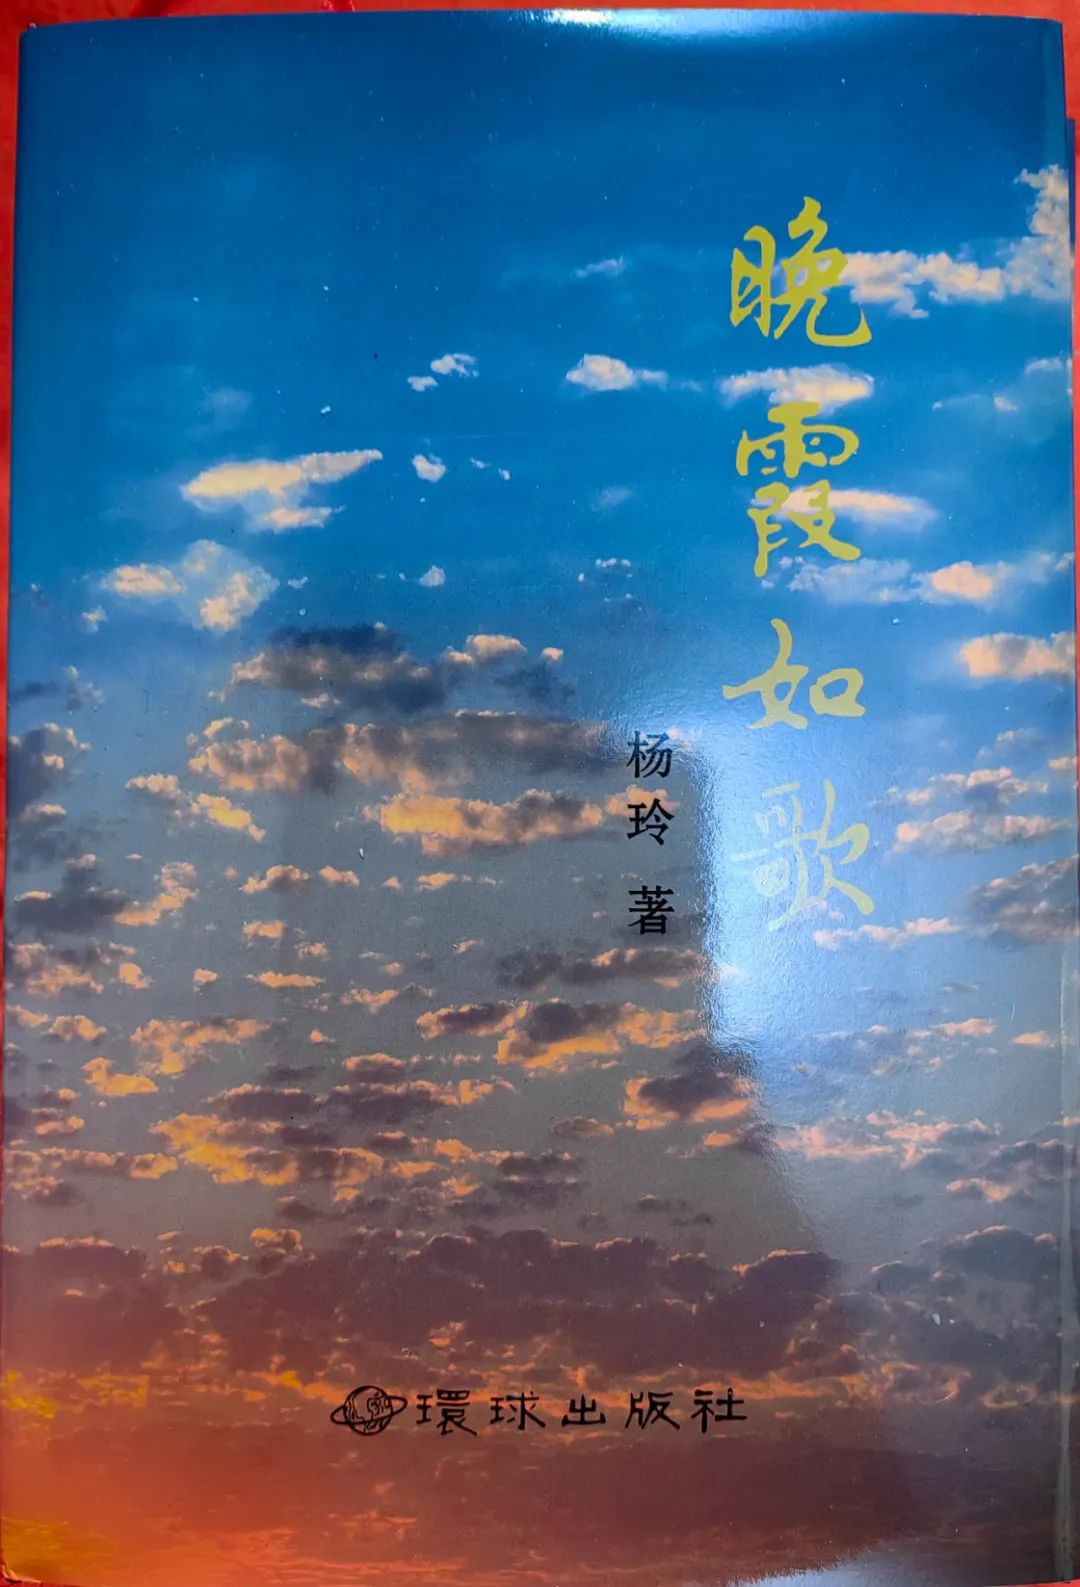 晚霞如歌
杨玲 著
環球出版社